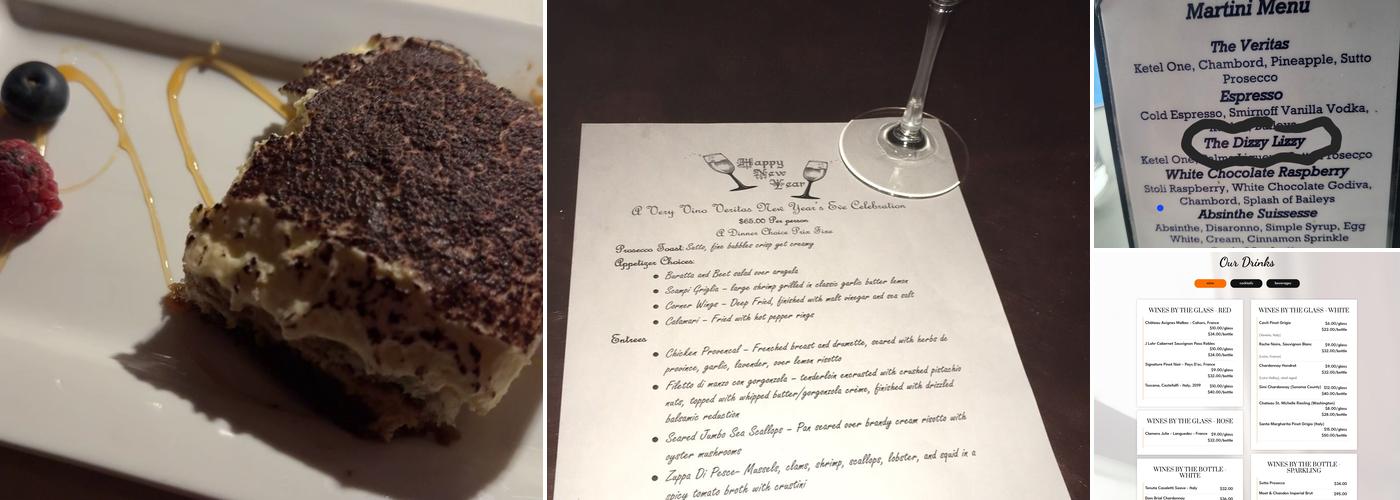 Happy
New
Year
A Very Vino Veritas New Year's Eve Celebration
$65.00 Per person
A Dinner Choice Prix Fixe
Prosecco Toast: Sutto, fine bubbles crisp yet creamy
Appetizer Choices:
Buratta and Beet salad over arugula
Scampi Griglia – large shrimp grilled in classic garlic butter lemon
Corner Wings – Deep Fried, finished with malt vinegar and sea salt
Calamari – Fried with hot pepper rings
Entrees
Chicken Provencal – Frenched breast and drumette, seared with herbs de
province, garlic, lavender, over lemon risotto
Filetto di manzo con gorgonzola – tenderloin encrusted with crushed pistachio
nuts, topped with whipped butter/gorgonzola crème, finished with drizzled
balsamic reduction
Seared Jumbo Sea Scallops – Pan seared over brandy cream risotto with
oyster mushrooms
Zuppa Di Pesce– Mussels, clams, shrimp, scallops, lobster, and squid in a
spicy tomato broth with crustini
Martini Menu
The Veritas
Ketel One, Chambord, Pineapple, Sutto
Prosecco
Espresso
Cold Espresso, Smirnoff Vanilla Vodka,
Baileys
The Dizzy Lizzy
Ketel One, Prosecco
White Chocolate Raspberry
Stoli Raspberry, White Chocolate Godiva,
Chambord, Splash of Baileys
Absinthe Suissesse
Absinthe, Disaronno, Simple Syrup, Egg
White, Cream, Cinnamon Sprinkle
Our Drinks
wine cocktails beverages
WINES BY THE GLASS - RED
Château Avignes Malbec - Cahors, France
$10.00/glass
$34.00/bottle
J Lohr Cabernet Sauvignon Paso Robles
$10.00/glass
$34.00/bottle
Signature Pinot Noir - Pays D'oc, France
$9.00/glass
$32.00/bottle
Toscana, Castelfalfi - Italy, 2019 $10.00/glass
$40.00/bottle
WINES BY THE GLASS - ROSE
Clemens Julie - Languedoc - France $9.00/glass
$32.00/bottle
WINES BY THE BOTTLE -
WHITE
Tenuta Casaletti Soave - Italy $32.00
Dom Brial Chardonnay $36.00
WINES BY THE GLASS - WHITE
Cavit Pinot Grigio $6.00/glass
$23.00/bottle
Roche Noire, Sauvignon Blanc $9.00/glass
$32.00/bottle
Chardonnay Hondrat $9.00/glass
$32.00/bottle
Simi Chardonnay (Sonoma County) $12.00/glass
$42.00/bottle
Chateau St. Michelle Riesling (Washington)
$8.00/glass
$28.00/bottle
Santa Margherita Pinot Grigio (Italy)
$15.00/glass
$50.00/bottle
WINES BY THE BOTTLE -
SPARKLING
Sutto Prosecco $34.00
Moet & Chandon Imperial Brut $95.00